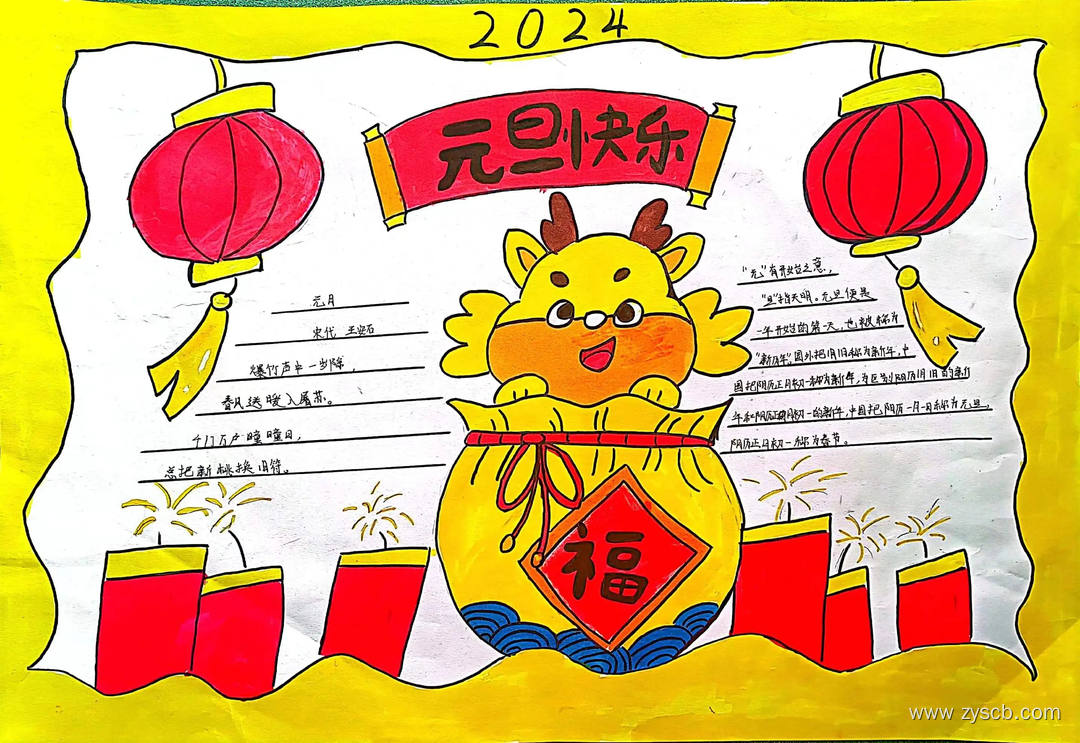 2024
元旦快乐
元日
宋代 王安石
爆竹声中一岁除，
春风送暖入屠苏。
千门万户曈曈日，
总把新桃换旧符。
“元”有开始之意，
“旦”指天明。元旦便是
一年开始的第一天，也被称为
“新历年”，国外把1月1日称为新年，中
国把阴历正月初一称为新年，为区别阳历1月1日的新
年和阴历正月初一的新年，中国把阳历一月一日称为元旦，
阴历正月初一称为春节。
福
www.zyscb.com